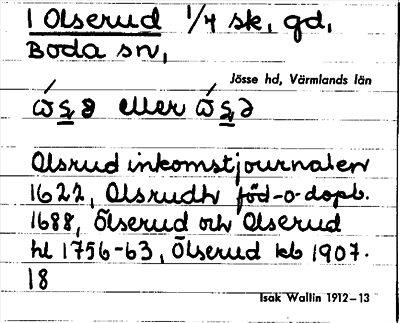 1 Olserud 1/4 sk, gd,
Boda sn,
Jösse hd, Värmlands län
eller
Olsrud inkomstjournalen
1622, Olsrudh föd-o-dopb.
1688, Ölserud och Olserud
hl 1756-63, Ölserud kb 1907.
18
Isak Wallin 1912-13